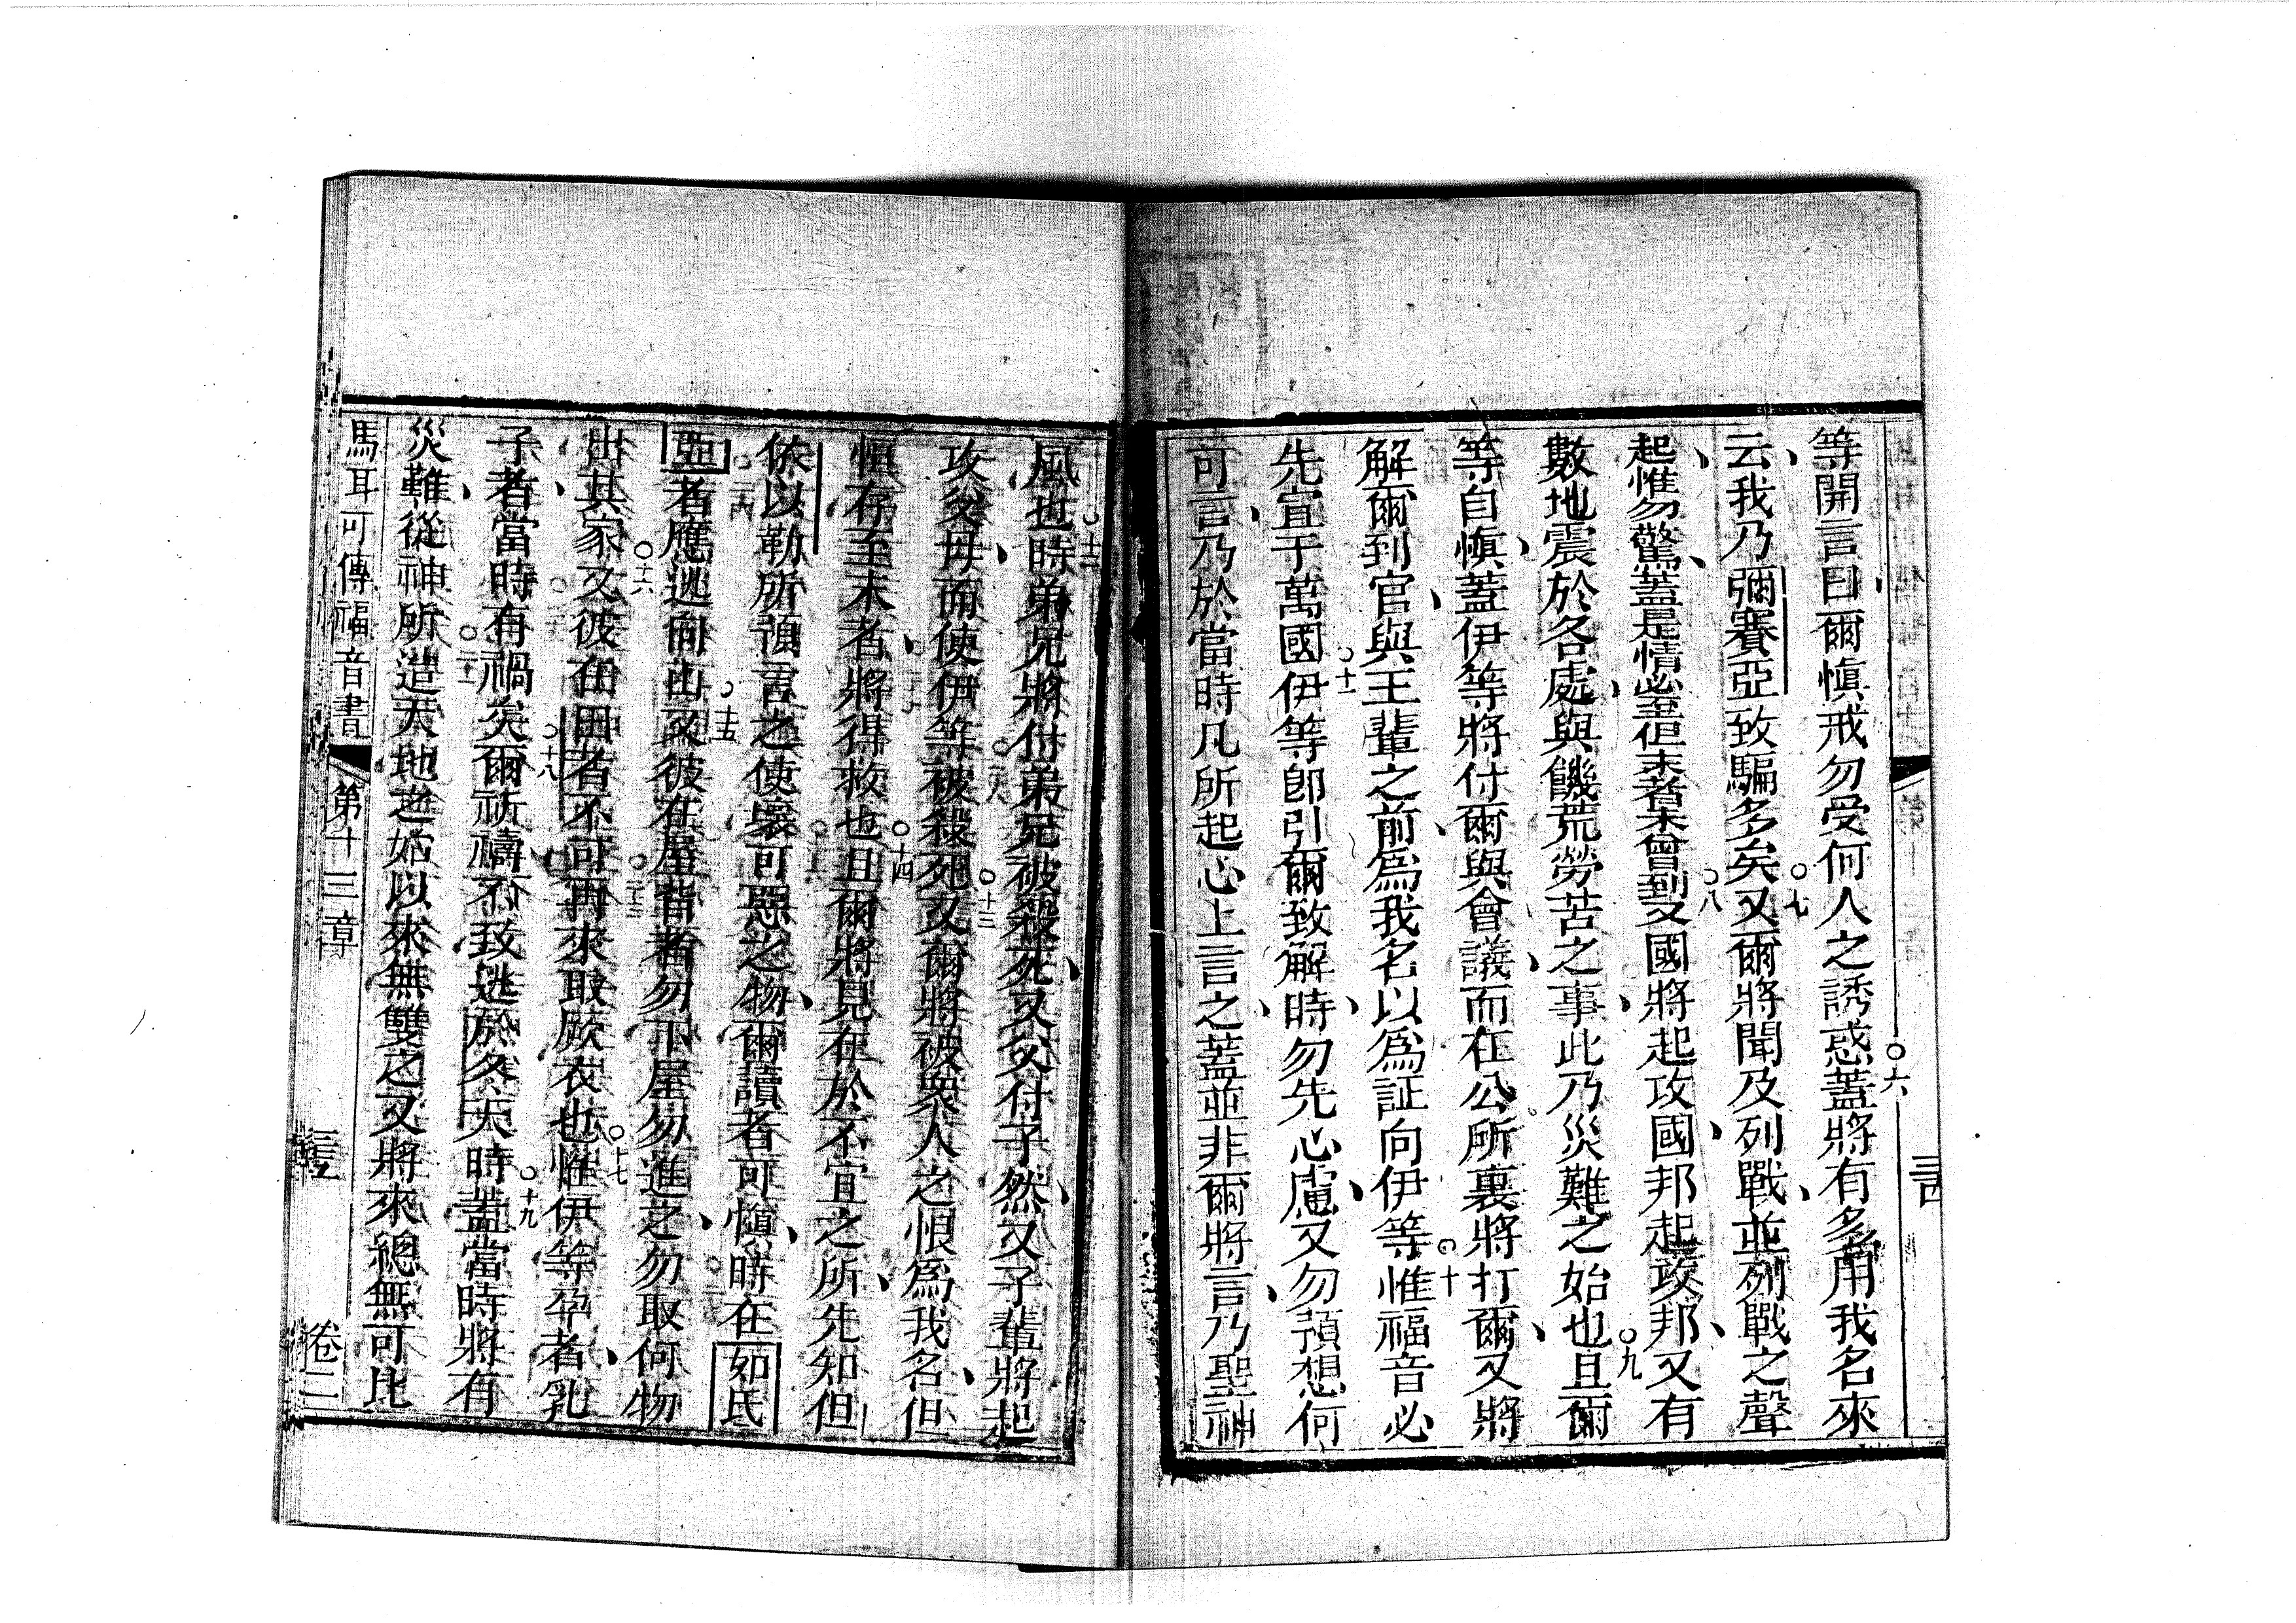 等開言曰爾慎戒勿受何人之誘惑蓋○六將有多用我名來
云我乃彌賽亞致騙多矣○七又爾將聞及列戰並列戰之聲
起惟勿驚蓋是情必至但末者未曾到○八又國將起攻國邦起攻邦又有
數地震於各處與饑荒勞苦之事此乃災難之始也○九且爾
等自慎蓋伊等將付爾與會議而在公所裏將打爾又將
解爾到官與王輩之前為我名以為証向伊等○十惟福音必
先宣于萬國○十一伊等即引爾致解時勿先心慮又勿預想何
可言乃於當時凡所起心上言之蓋並非爾將言乃聖神
風也○十二時弟兄將付弟兄被殺死又父付子然又子輩將起
攻父母而使伊等被殺死○十三又爾將被眾人之恨為我名但
恆存至末者將得救也○十四且爾將見在於不宜之所先知但
依以勒所預言之使壞可惡之物爾讀者可慎時在如氏
亞者應逃向山○十五又彼在屋背者勿下屋勿進之勿取何物
出其家○十六又彼在田者不可再來取厥衣也○十七惟伊等孕者乳
子者當時有禍矣○十八爾祈禱不致逃於冬天時○十九蓋當時將有
災難從神所造天地之始以來無雙之又將來總無可比
馬耳可傳福音書 第十三章 卷二